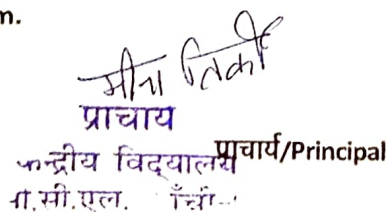 n.
मीना तिर्की
प्राचाय
केन्द्रीय विद्यालय प्राचार्य/Principal
.सी.एल. राँची